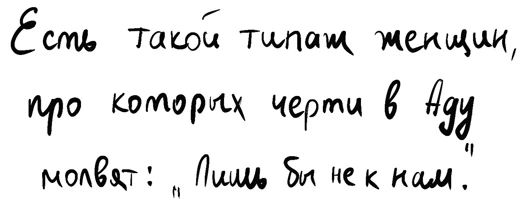 Есть такой типаж женщин,
про которых черти в Аду
молвят: „Лишь бы не к нам."